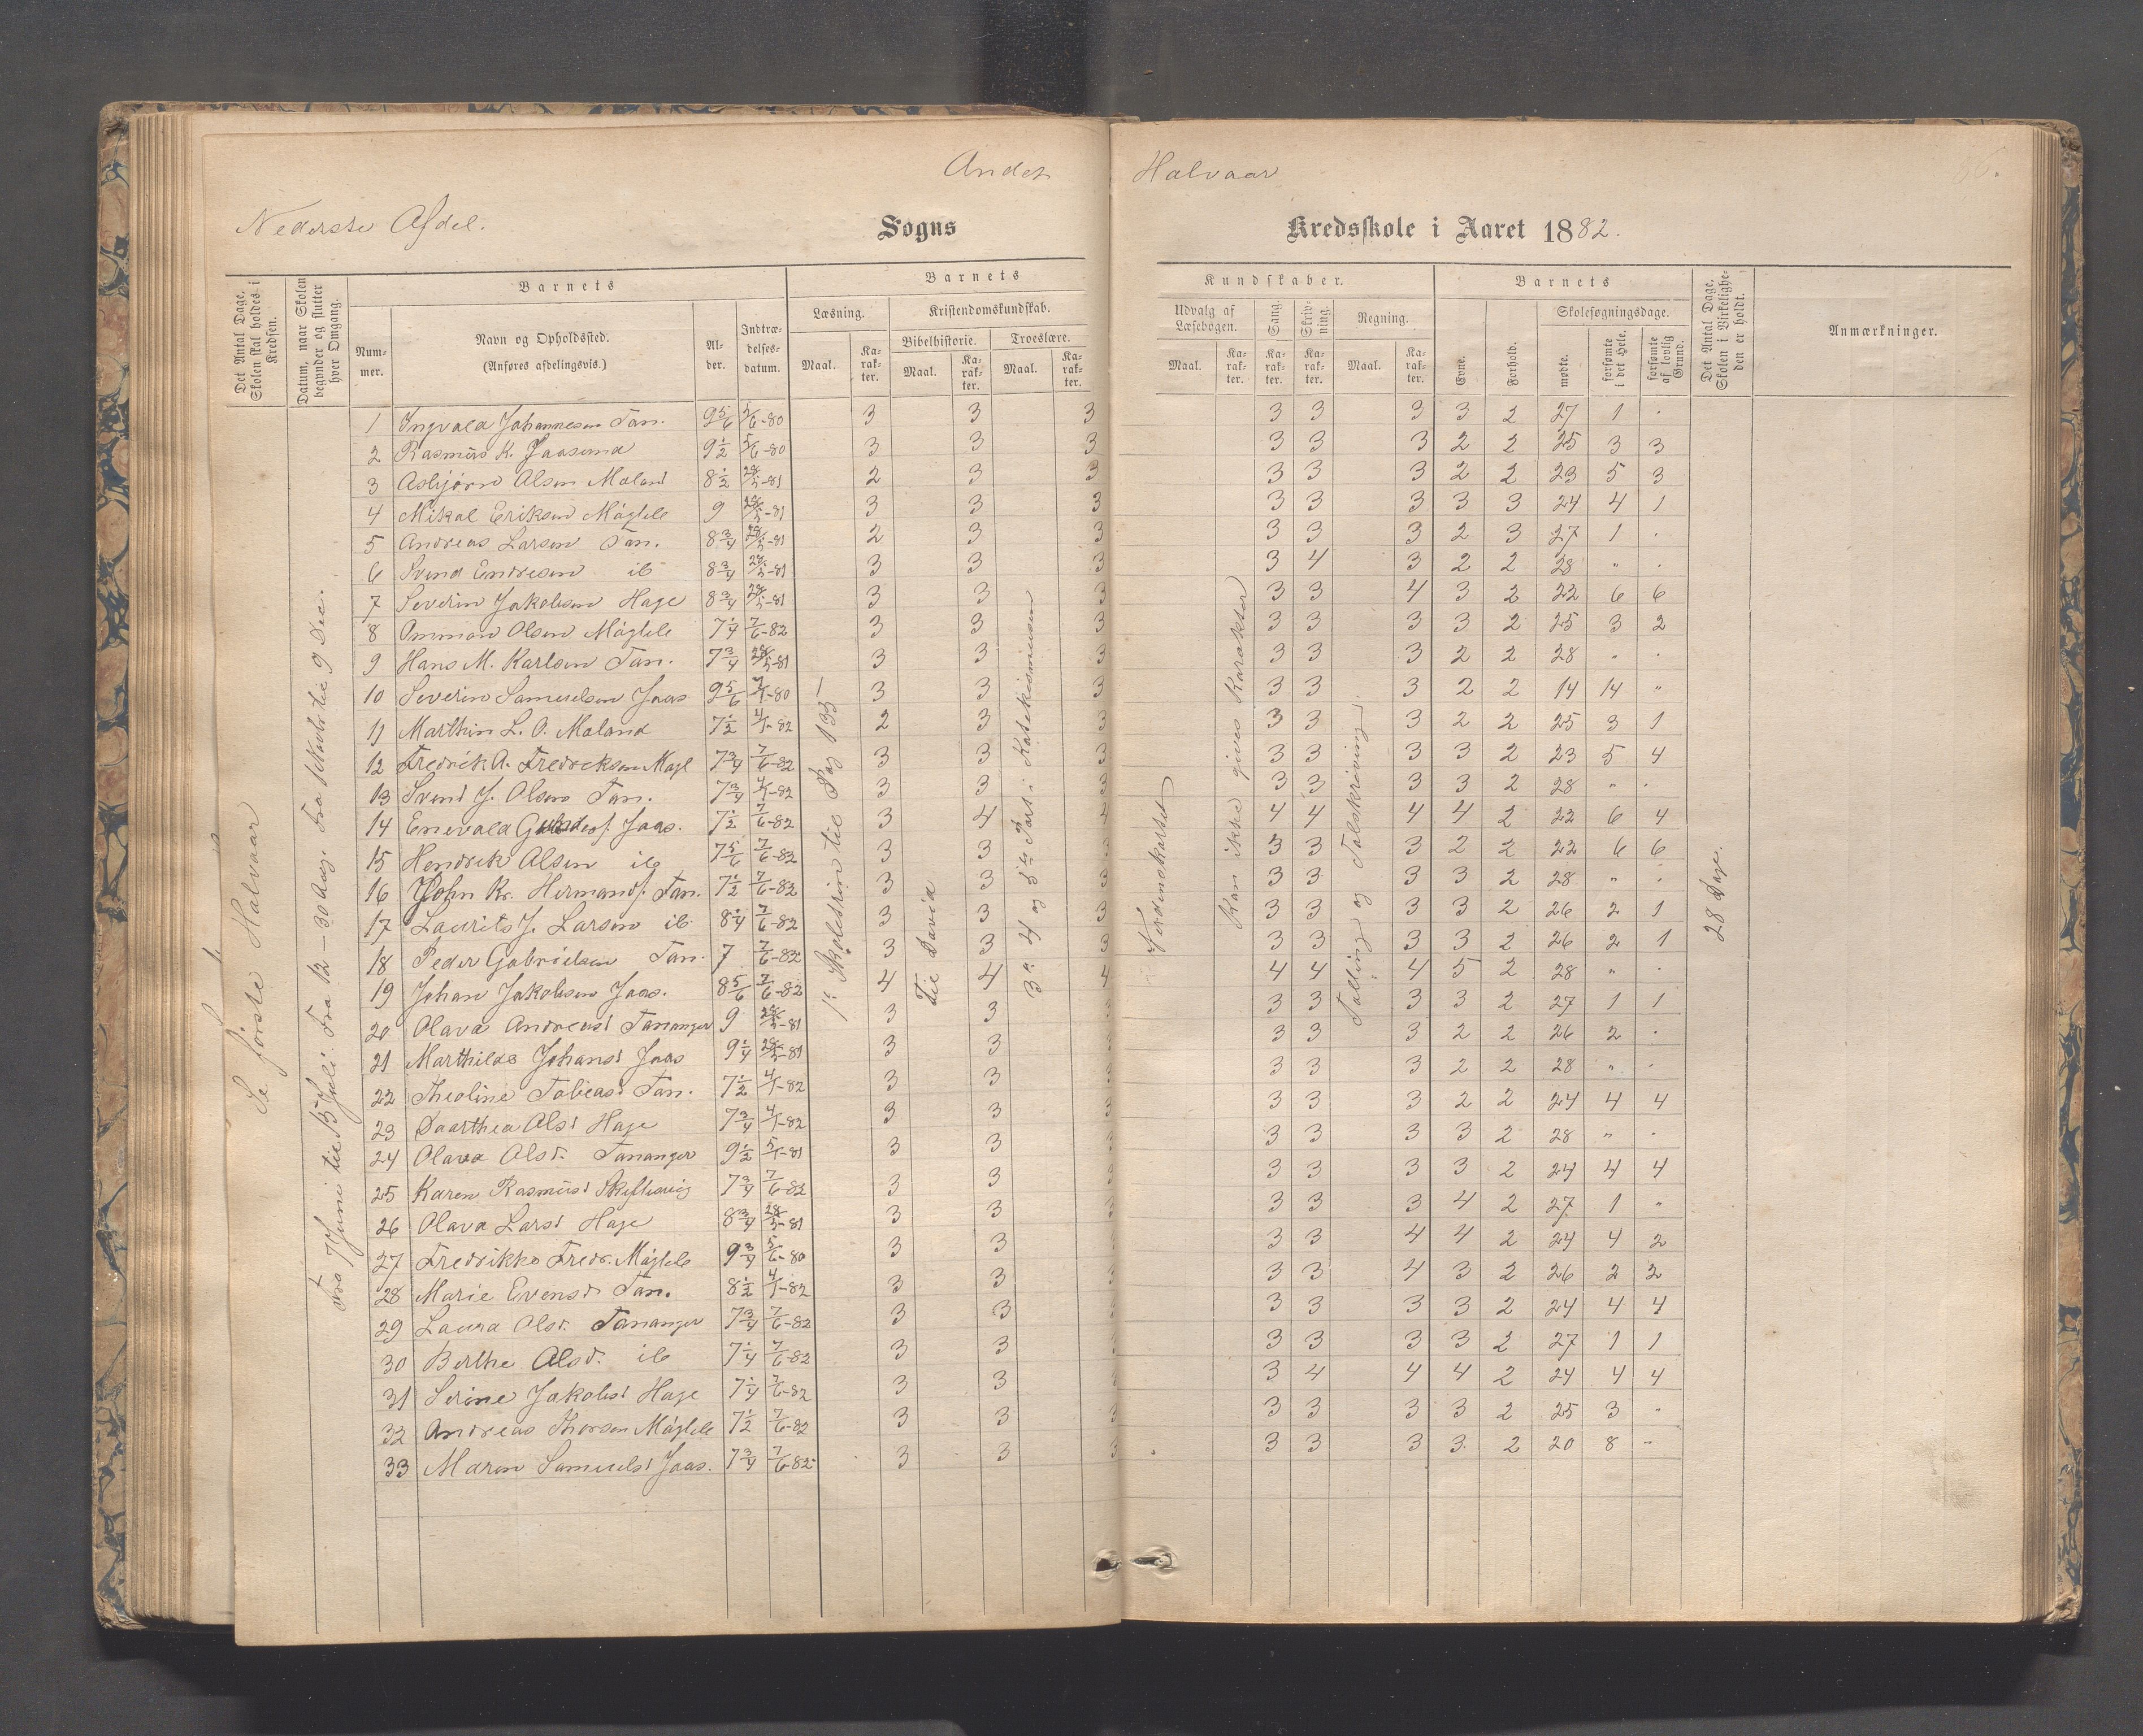 Andet Halvaar
86.
Nederste Afdel. Sogns Kredsskole i Aaret 1882.
Det Antal Dage, Skolen skal holdes i Kredsen.
Datum, naar Skolen begynder og slutter hver Omgang.
Barnets
Nummer.
Navn og Opholdssted.
(Anføres afdelingsvis.)
Alder.
Indtrædelsesdatum.
Barnets Kundskaber.
Læsning. Maal. Karakter.
Kristendomskundskab.
Bibelhistorie. Maal. Karakter.
Troeslære. Maal. Karakter.
Udvalg af Læsebogen. Maal. Karakter.
Sang. Karakter.
Skrivning. Karakter.
Regning. Maal. Karakter.
Barnets
Evne.
Forhold.
Skolesøgningsdage.
mødte.
forsømte i det Hele.
forsømte af lovlig Grund.
Det Antal Dage, Skolen i Virkeligheden er holdt.
Anmærkninger.
Se første Halvaar
Fra 7 Juni til 15 Juli. Fra 12 – 30 Aug. Fra 1 Novbr til 9 Dec.
1e Skoletrin til Pag 135 –
Til David
3e 4 og 5te Part i Katekismusen
Verdenskartet
Kan ikke gives Karakter
Talling og Talskrivning
28 Dage.
1 Ingvald Johannesen Tan. 9 5/6 5/6-80 3 3 3 3 3 3 3 2 27 1 .
2 Rasmus K. Jaasund 9 1/2 5/6-80 3 3 3 3 3 3 2 2 25 3 3
3 Asbjørn Olsen Meland 8 1/2 28/5-81 2 3 3 3 3 3 2 2 23 5 3
4 Mikal Eriksen Møglele 9 28/5-81 3 3 3 3 3 3 3 3 24 4 1
5 Andreas Larsen Tan. 8 3/4 28/5-81 2 3 3 3 3 3 2 3 27 1 .
6 Svend Endresen ib 8 3/4 28/5-81 3 3 3 3 4 3 2 2 28 " .
7 Severin Jakobsen Hage 8 3/4 28/5-81 3 3 3 3 3 4 3 2 22 6 6
8 Ommon Olsen Møglele 7 1/4 7/6-82 3 3 3 3 3 3 3 2 25 3 2
9 Hans M. Karlsen Tan. 7 3/4 28/5-81 3 3 3 3 3 3 2 2 28 " .
10 Severin Samuelsen Jaas 9 5/6 7/1-80 3 3 3 3 3 3 2 2 14 14 "
11 Marthin L. O. Meland 7 1/2 4/1-82 2 3 3 3 3 3 2 2 25 3 1
12 Fredrik A. Fredriksen Møgl 7 3/4 7/6-82 3 3 3 3 3 3 3 2 23 5 4
13 Svend J. Olsen Tan. 7 3/4 4/1-82 3 3 3 3 3 3 3 2 28 " .
14 Enevald Jaas. 7 1/2 7/6-82 3 4 4 4 4 4 4 2 22 6 4
15 Hendrik Olsen ib 7 5/6 7/6-82 3 3 3 3 3 3 2 2 22 6 6
16 John Kr. Hermands. Tan. 7 1/2 7/6-82 3 3 3 3 3 3 3 2 28 " .
17 Laurits J. Larsen ib 8 1/4 7/6-82 3 3 3 3 3 3 3 2 26 2 1
18 Peder Gabrielsen Tan. 7 7/6-82 3 3 3 3 3 3 3 2 26 2 1
19 Johan Jakobsen Jaas. 8 5/6 7/6-82 4 4 4 4 4 4 5 2 28 " .
20 Olava Andreasd Tananger 9 28/5-81 3 3 3 3 3 3 2 27 1 1
21 Marthilde Johansd Jaas 9 1/4 28/5-81 3 3 3 3 3 2 2 26 2 .
22 Theoline Tobiasd Tan. 7 1/2 4/1-82 3 3 3 3 3 2 2 28 " .
23 Daarthea Olsd Hage 7 3/4 4/1-82 3 3 3 3 3 2 2 24 4 4
24 Olava Olsd. Tananger 9 1/2 5/1-81 3 3 3 3 3 3 2 28 " .
25 Karen Rasmusd Skiftesvig 7 3/4 7/6-82 3 3 3 3 3 3 2 24 4 4
26 Olava Larsd Hage 8 3/4 28/5-81 3 3 3 3 3 4 2 27 1 "
27 Fredrikke Fredr. Møglele 9 3/4 5/6-80 3 3 3 3 4 4 2 24 4 2
28 Marie Evensd. Tan. 8 1/2 4/1-82 3 3 3 3 4 3 2 26 2 2
29 Laura Olsd. Tananger 7 3/4 7/6-82 3 3 3 3 3 3 2 24 4 4
30 Berthe Olsd. ib 7 1/4 7/6-82 3 3 3 3 3 3 2 27 1 1
31 Serine Jakobsd Hage 7 1/4 7/6-82 3 3 3 4 4 4 2 24 4 4
32 Andreas Thorsen Møglele 7 1/2 7/6-82 3 3 3 3 3 3 3 2 25 3 "
33 Maren Samuelsd Jaas. 7 3/4 7/6-82 3 3 3 3 3 3 3 2 20 8 "